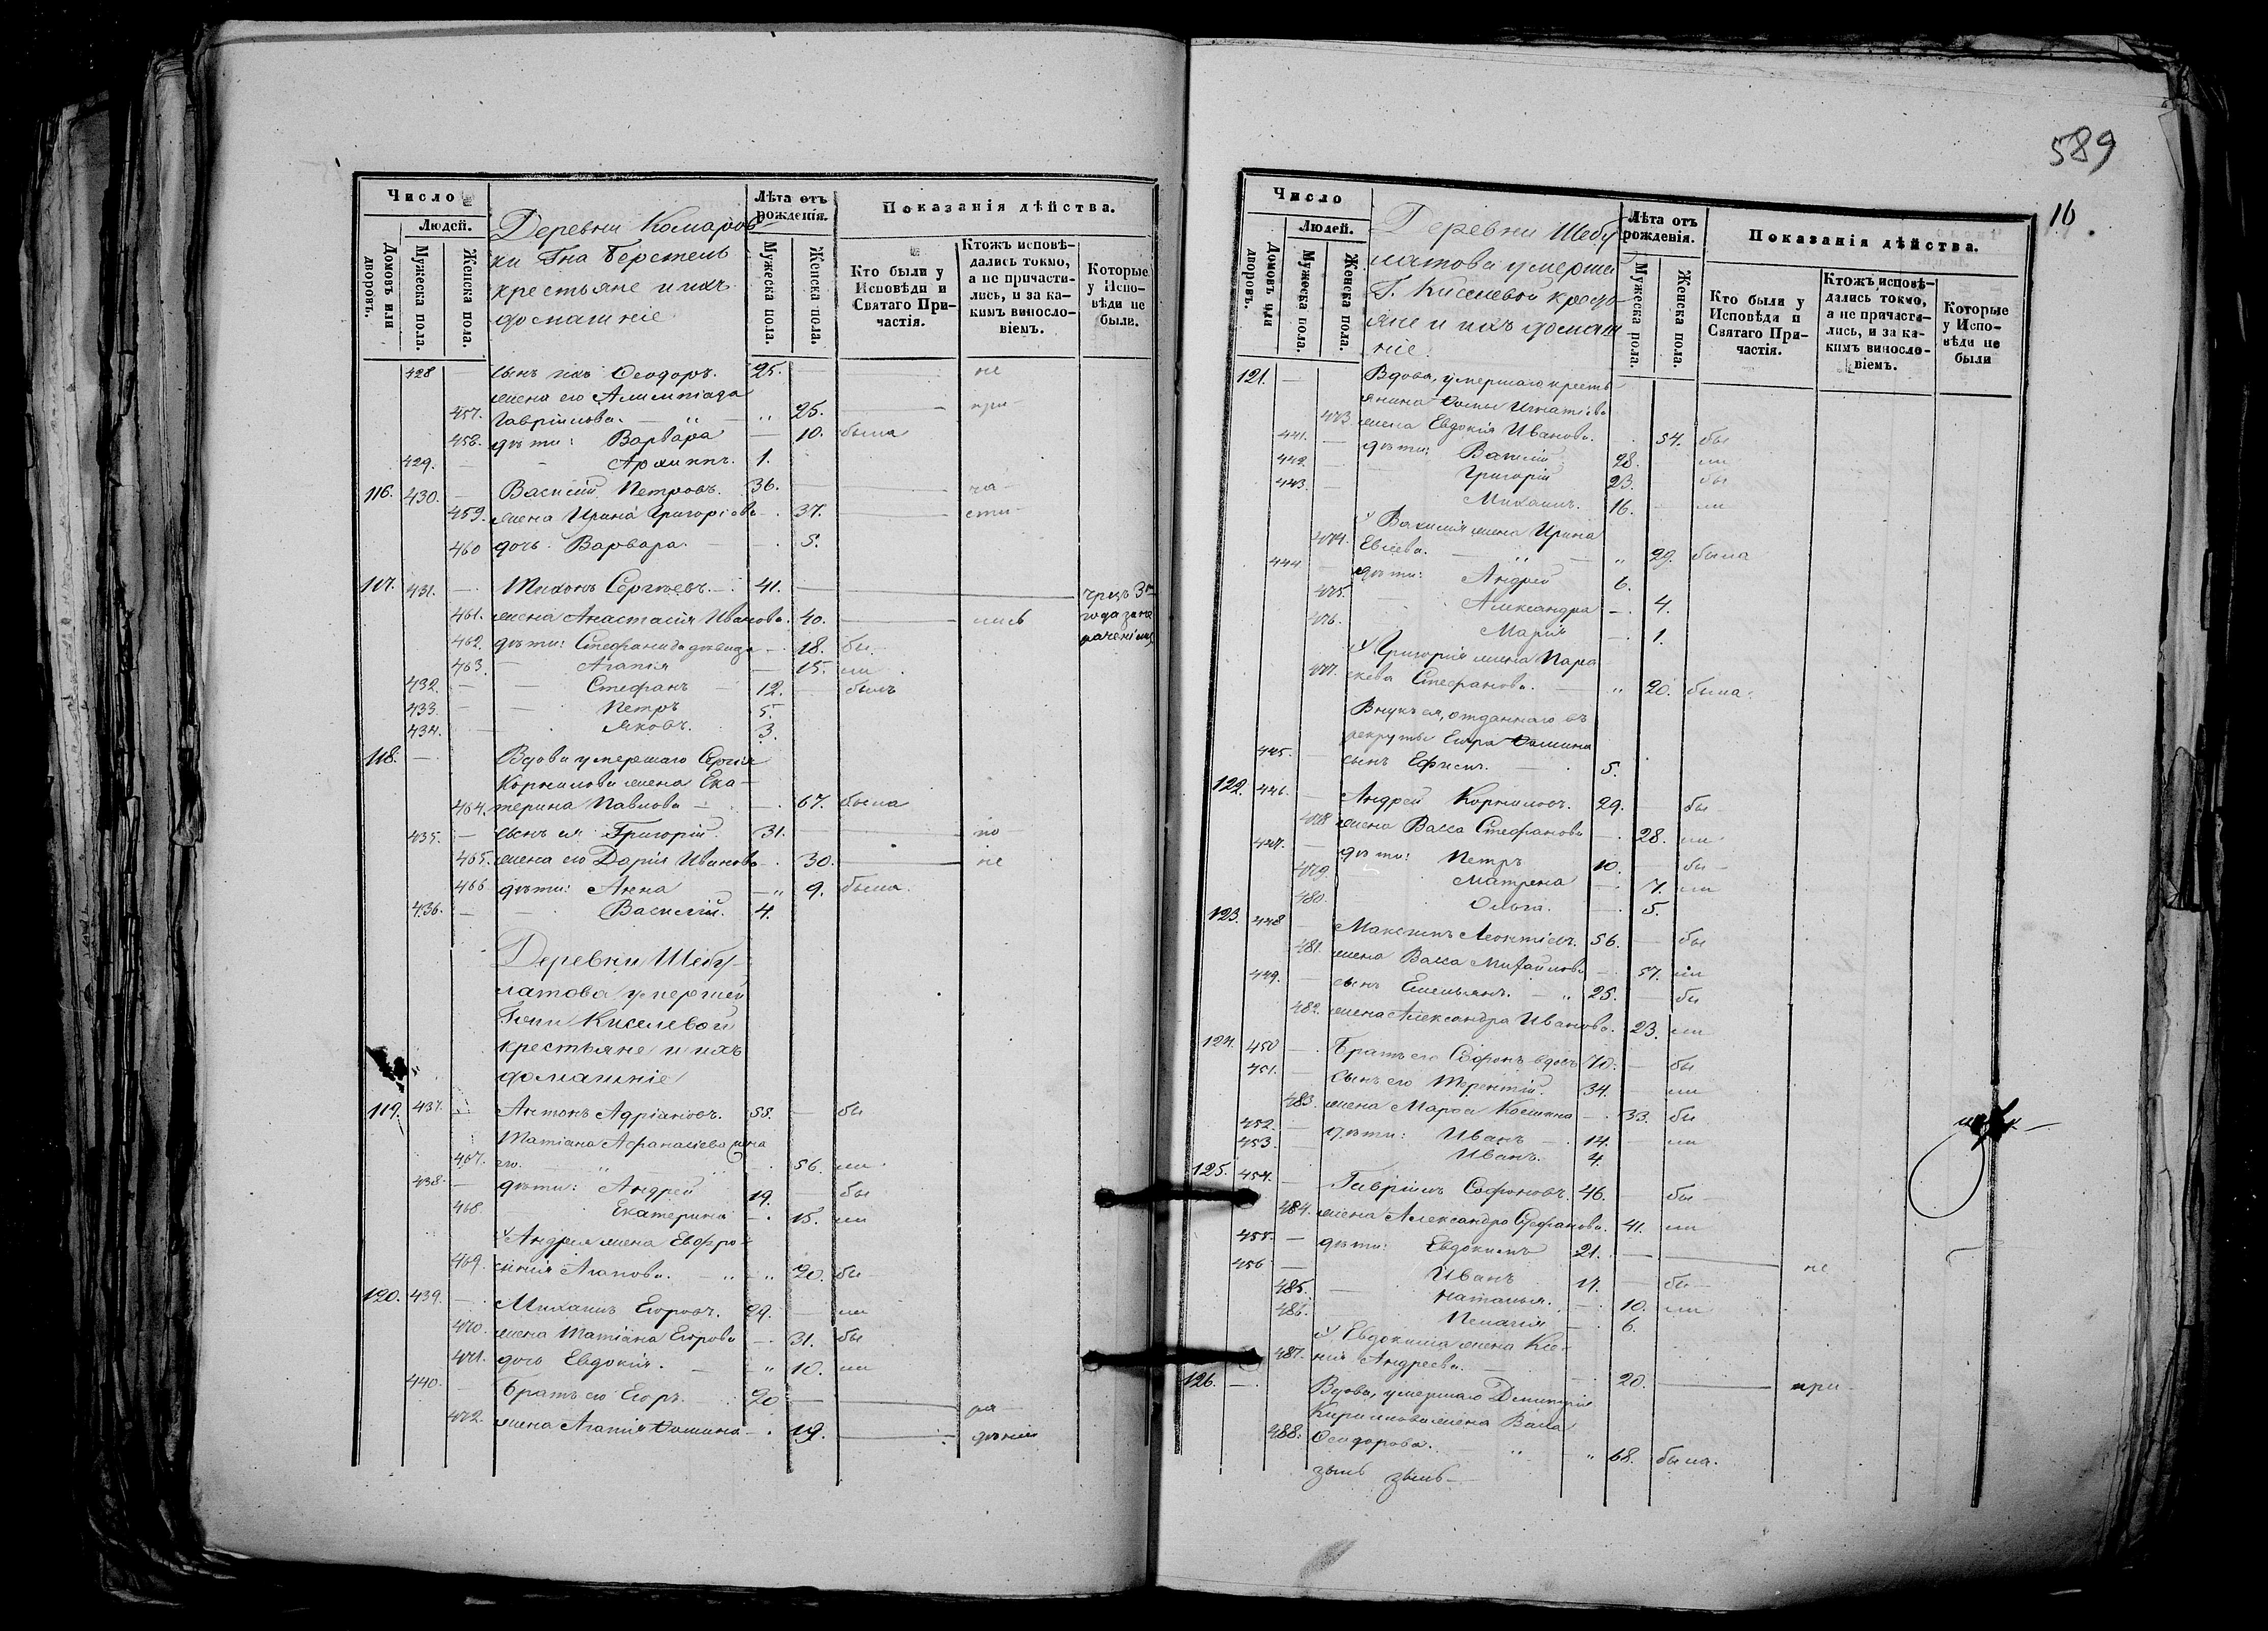 Число
Людей.
Домовъ или дворовъ.
Мужеска пола.
Женска пола.
Деревни Комаров-
ки Гна Берстель
крестьяне и ихъ
домашніе
Лѣта отъ рожденія.
Мужеска пола.
Женска пола.
Показанія дѣйства.
Кто были у Исповѣди и Святаго При-частія.
Ктожъ исповѣ-дались токмо, а не причасти-лись, и за ка-кимъ винословіемъ.
Которые у Испо-вѣди не были.
428 — сынъ ихъ Ѳеодоръ. 25. — не
жена его Алимпіада
457. Гавріилова. — „ 25. — при-
458. дѣти: Варвара — 10. была
429. — Архиппъ. 1.
116. 430. — Василій Петровъ. 36. — ча-
459. жена Ирина Григоріева — 37. — сти-
460 дочь Варвара. — 5.
117. 431. — Тихонъ Сергѣевъ. 41. — чрезъ 3
461. жена Анастасія Иванова. 40. — лись года за не
462. дѣти: Стефанида дѣвица — 18. бы-
463. — Агапія — 15. ли
432. — Стефанъ — 12. — былъ
433. — Петръ 5.
434. — Яковъ. 3.
118. — Вдова умершаго Сергія
Корнилова жена Ека-
464. терина Павлова — 67. была
435. — сынъ ея Григорій. 31. — по-
465. жена его Дарія Иванова — 30. — не
466 дѣти: Анна — „ 9. была.
436. — Василій. 4.
Деревни Шебу-
латова умершей
Гжи Киселевой
крестьяне и ихъ
домашніе
119. 437. — Антонъ Адріановъ. 55. — бы
Татіана Аѳанасіева жена
467. его. „ 56. ли
438. — дѣти: Андрей 19. — бы
468. Екатерина — 15. ли
у Андрея жена Евфро-
469. синія Агапова. — „ „ 20. бы-
120. 439. — Михаилъ Егоровъ. 29. — ли
470. жена Татіана Егорова — 31. бы
471. дочь Евдокія. — „ 10. ли
440. — Братъ его Егоръ. 20 — ра-
472. жена Агапія Ѳомина — 19. — дѣнію
589
16.
Число
Людей.
Домовъ или дворовъ.
Мужеска пола.
Женска пола.
Деревни Шебу
латова умершей
Г. Киселевой кресть
яне и ихъ домаш
ніе.
Лѣта отъ рожденія.
Мужеска пола.
Женска пола.
Показанія дѣйства.
Кто были у Исповѣди и Святаго При-частія.
Ктожъ исповѣ-дались токмо, а не причасти-лись, и за ка-кимъ винословіемъ.
Которые у Испо-вѣди не были
121. — Вдова, умершаго кресть
янина Ѳомы Игнатіева
473. жена Евдокія Иванова. 54. бы
441. — дѣти: Василій 28. ли
442. — Григорій 23. бы
443. — Михаилъ. 16. — ли
у Василія жена Ирина
474. Евсеева. — „ — „ 29. была
444. — дѣти: Андрей 6.
475. Александра — 4.
476. Марія — 1.
у Григорія жена Пара
477. скева Стефанова. — „ 20. была.
Внукъ ея, отданнаго въ
рекруты Егора Ѳомина
445. — сынъ Ефимъ. — 5.
122. 446. — Андрей Корниловъ. 29. — бы-
478 жена Васса Стефанова — 28. ли
447. — дѣти: Петръ 10. — бы-
479. Матрена — 7. ли
480. Ольга. — 5.
123. 448 — Максимъ Леонтіевъ. 56. — бы
481. жена Васса Михайлова — 57. ли
449. — сынъ Емельянъ. — „ 25. — бы
482. жена Александра Иванова. 23. ли
124. 450 — Братъ его Софонъ вдовъ 70. — бы
451. — сынъ его Терентій. 34. — ли
483. жена Марѳа Косьмина — 33. бы
452. — дѣти: Иванъ — 14. — ли
453. — Иванъ. 4.
125. 454. — Гавріилъ Софоновъ. 46. бы-
484. жена Александра Стефанова. 41. ли
455. — дѣти: Евдокимъ 21. — не
456 — Иванъ 17. — бы-
485. — Наталья. — 10. ли
486. Пелагія — 6.
у Евдокима жена Ксе-
487. нія Андреева. — 20. — при-
126. — Вдова, умершаго Димитрія
Кирилова жена Васса
488. Ѳеодорова. „ „ 68. была.